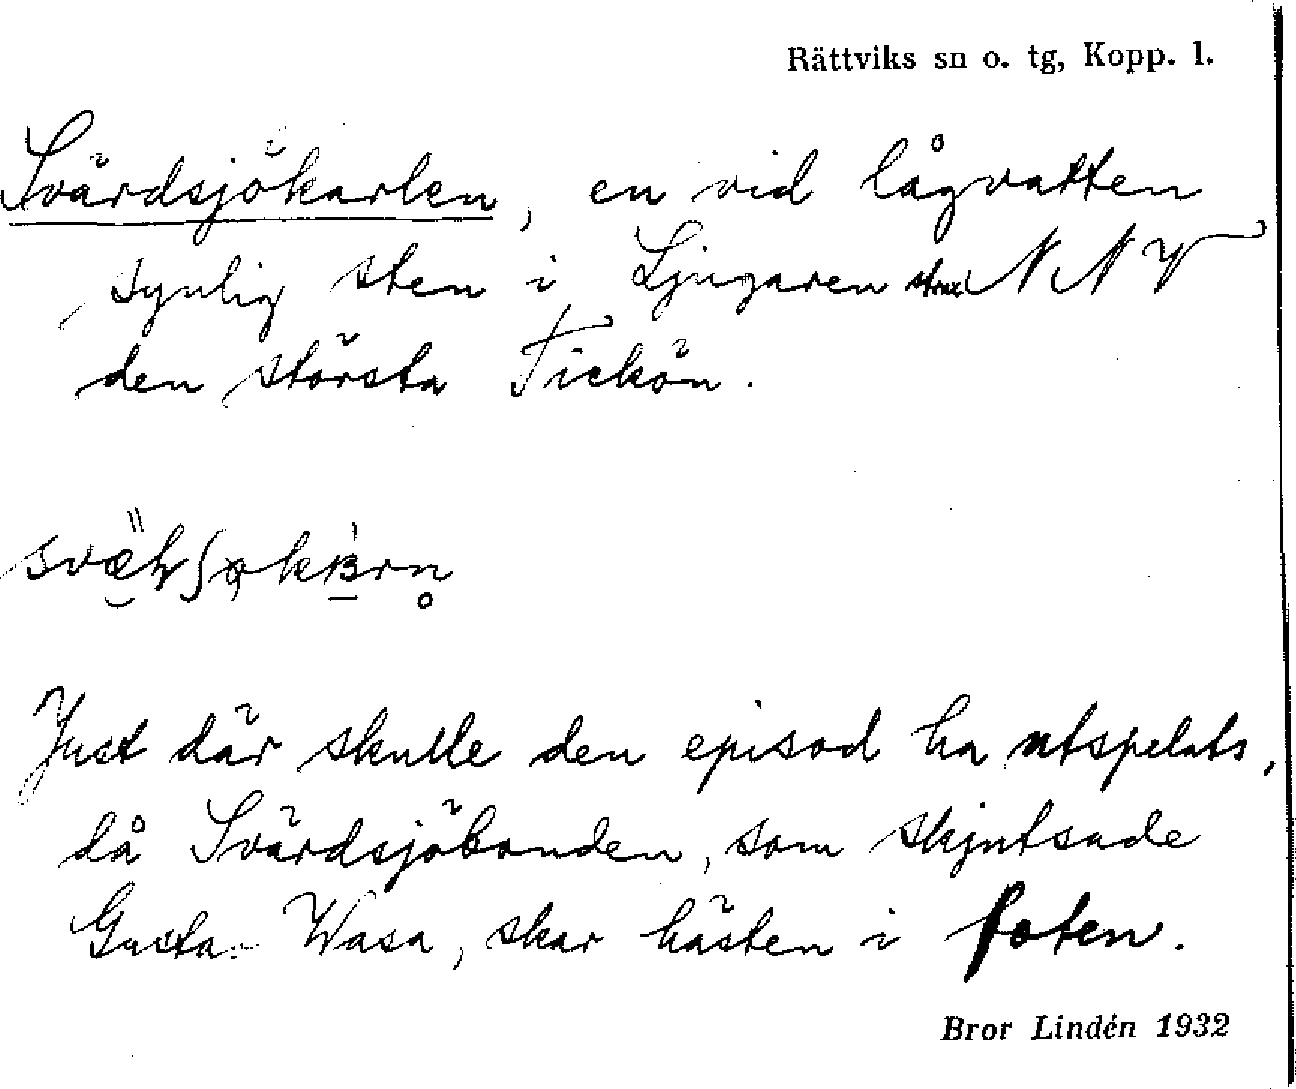 Rättviks sn o. tg, Kopp. l.
Svärdsjökarlen, en vid lågvatten
synlig sten i Ljugaren strax NNV
den största Tickön.
Just där skulle den episod ha utspelats,
då Svärdsjöbonden, som skjutsade
Gusta Wasa, skar hästen i foten.
Bror Lindén 1932